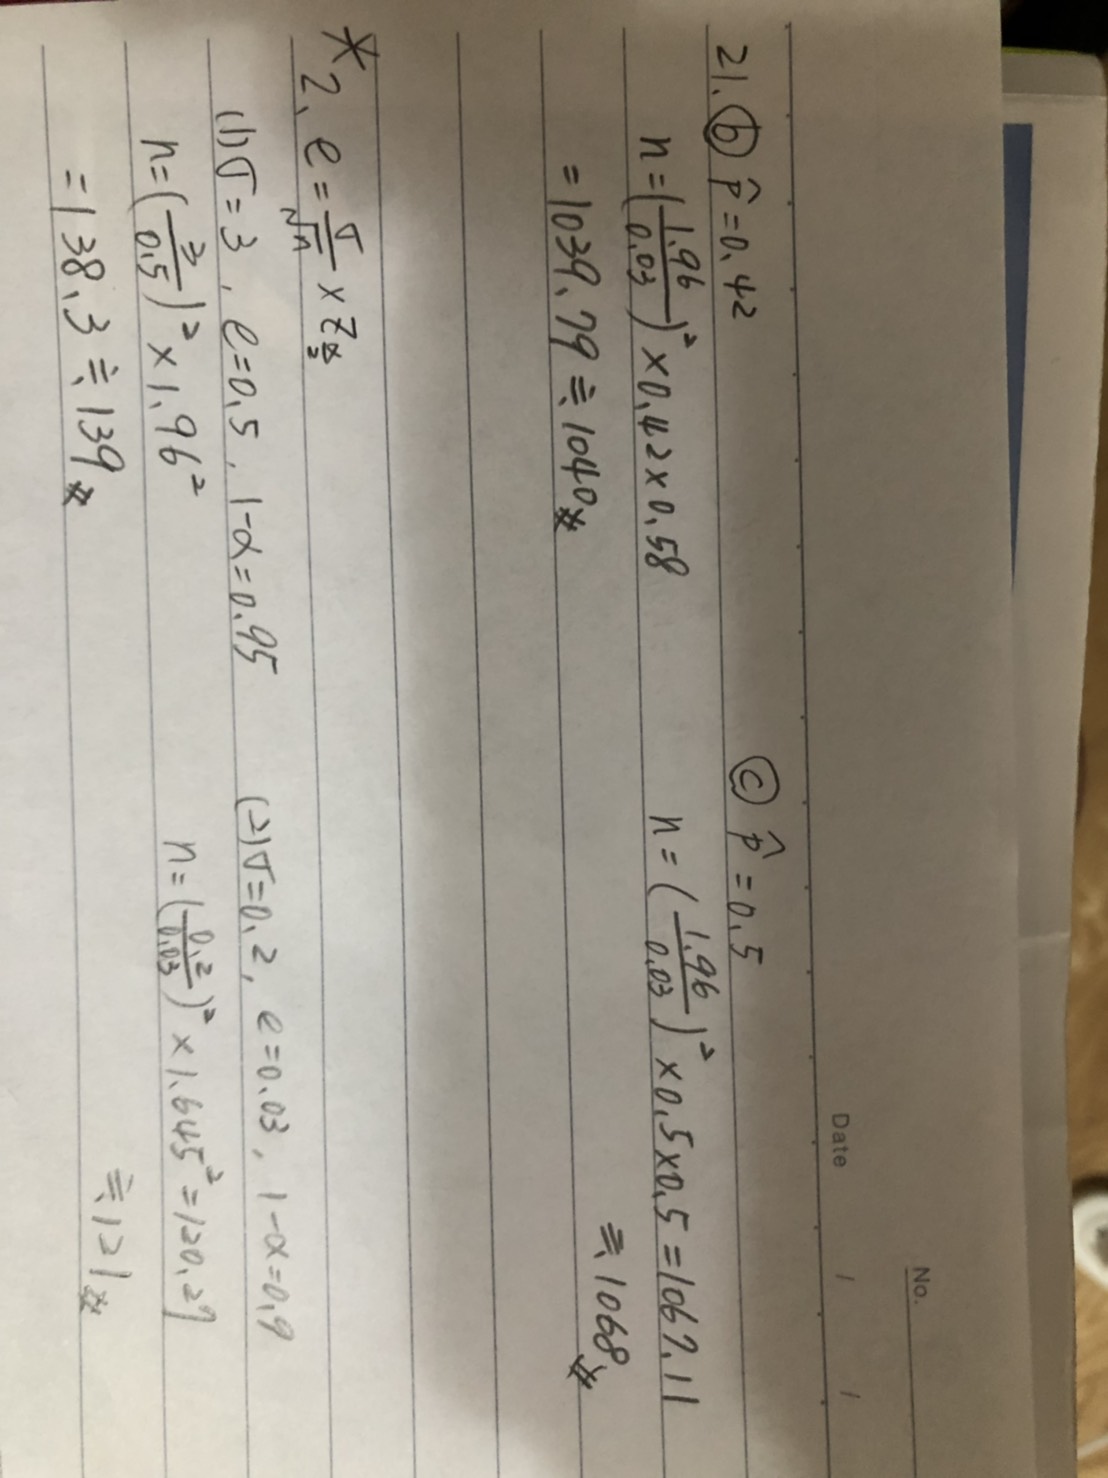 No.
Date / /
21. ⓑ p̂=0.42
n=(1.96/0.03)²×0.42×0.58
=1039.79≒1040
ⓒ p̂=0.5
n=(1.96/0.03)²×0.5×0.5=1067.11
≒1068
*2、e=σ/√n×Zα/2
(1)σ=3, e=0.5, 1-α=0.95
n=(3/0.5)²×1.96²
=138.3≒139
(2)σ=0.2, e=0.03, 1-α=0.9
n=(0.2/0.03)²×1.645²=120.27
≒121